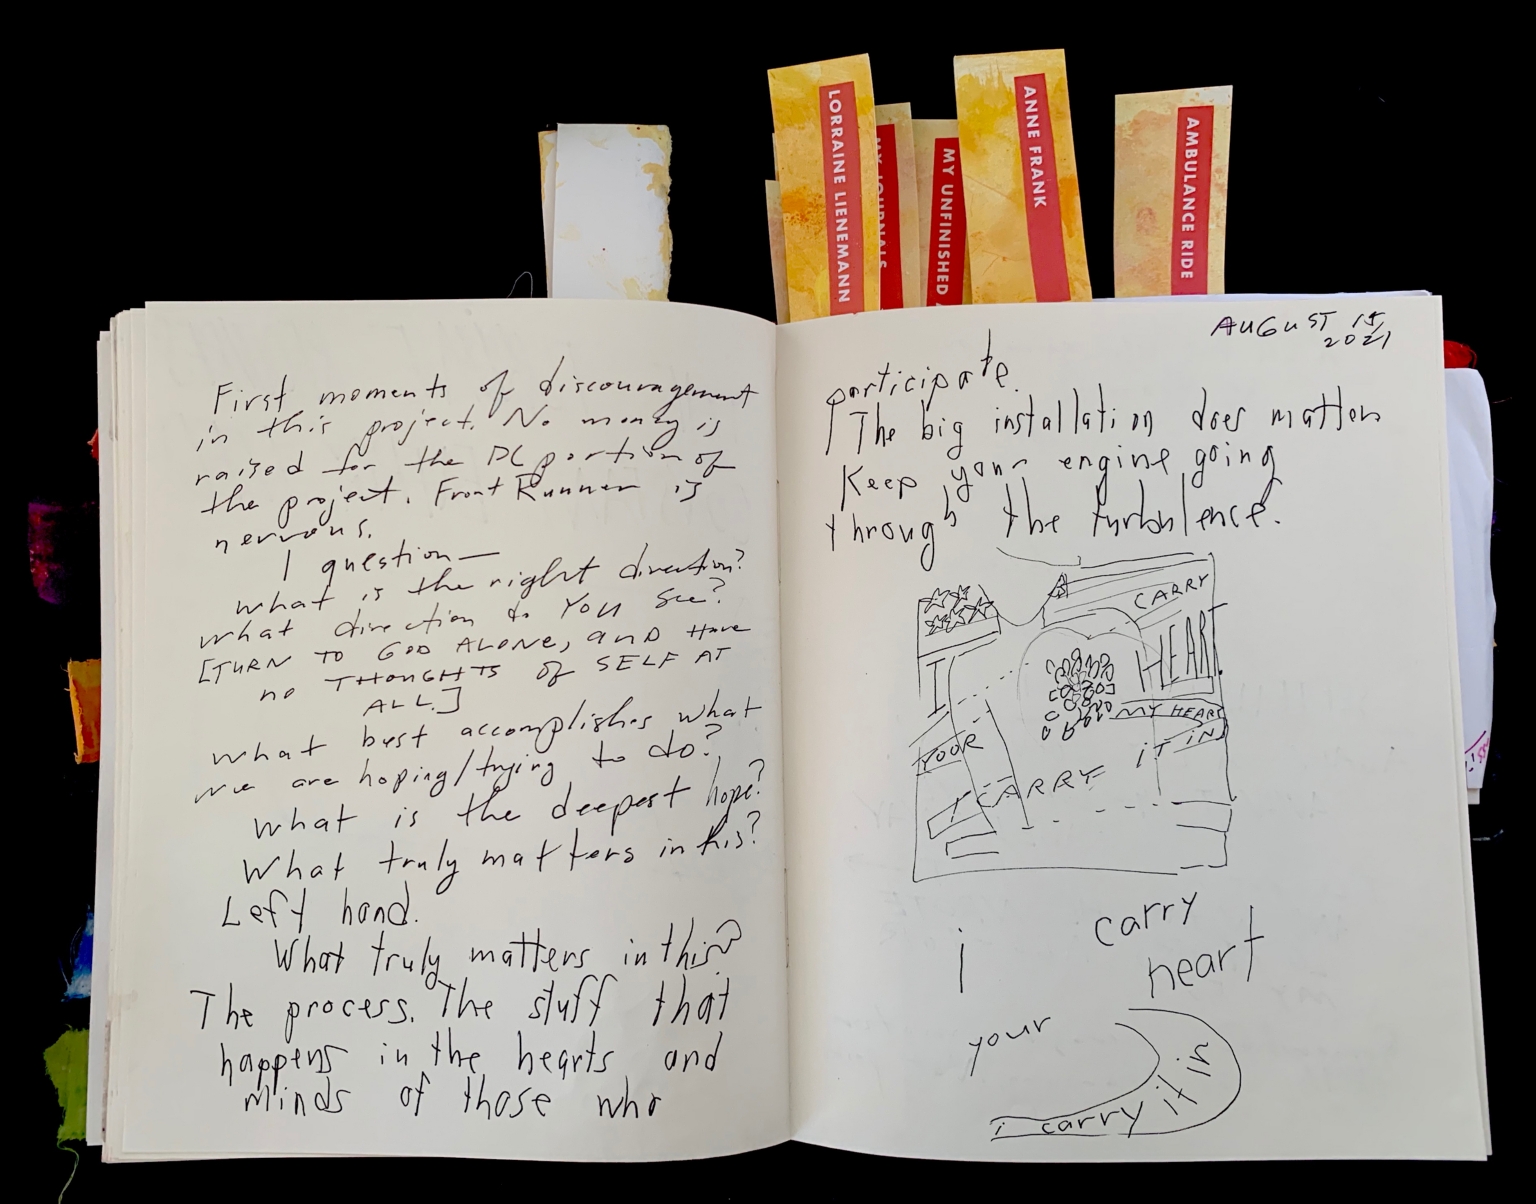 LORRAINE LIENEMANN
MY JOURNALS
MY UNFINISHED
ANNE FRANK
AMBULANCE RIDE
First moments of discouragement
in this project. No money is
raised for the DC portion of
the project. Front Runner is
nervous.
I question—
what is the right direction?
what direction do YOU see?
[TURN TO GOD ALONE, AND HAVE
NO THOUGHTS OF SELF AT
ALL.]
what best accomplishes what
we are hoping/trying to do?
what is the deepest hope?
What truly matters in this?
Left hand.
What truly matters in this?
The process. The stuff that
happens in the hearts and
minds of those who
AUGUST 15,
2021
participate.
The big installation does matter
Keep your engine going
through the turbulence.
CARRY
HEART.
I
MY HEART
YOUR
IT IN
I CARRY
i
carry
heart
your
i carry it in